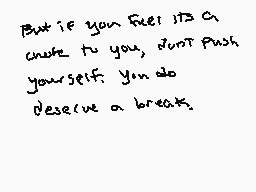 But if you feel its a
chore to you, don't push
yourself. you do
deserve a break.